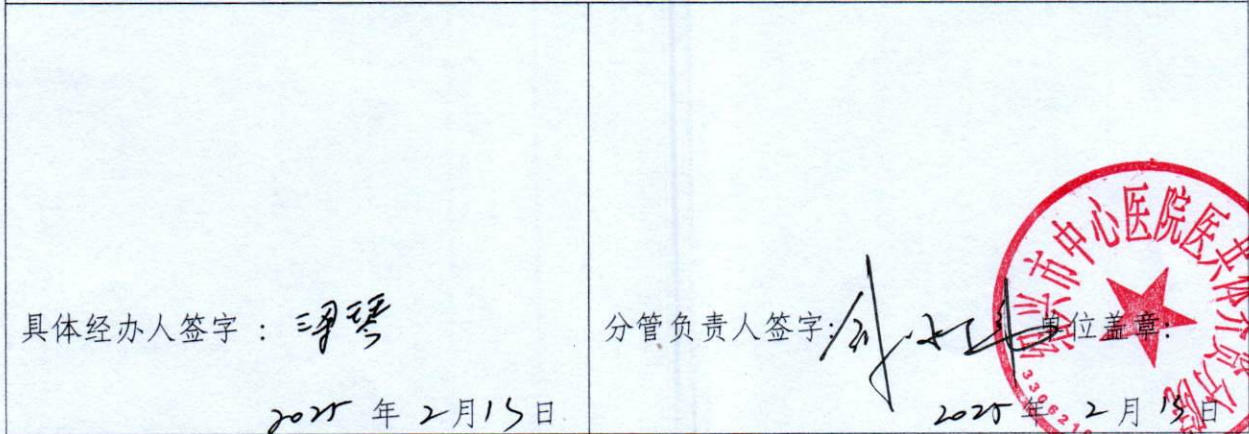 具体经办人签字:
2025 年 2月13日
分管负责人签字:
单位盖章:
2025 年 2 月 13日
绍兴市中心医院医共体齐贤分院